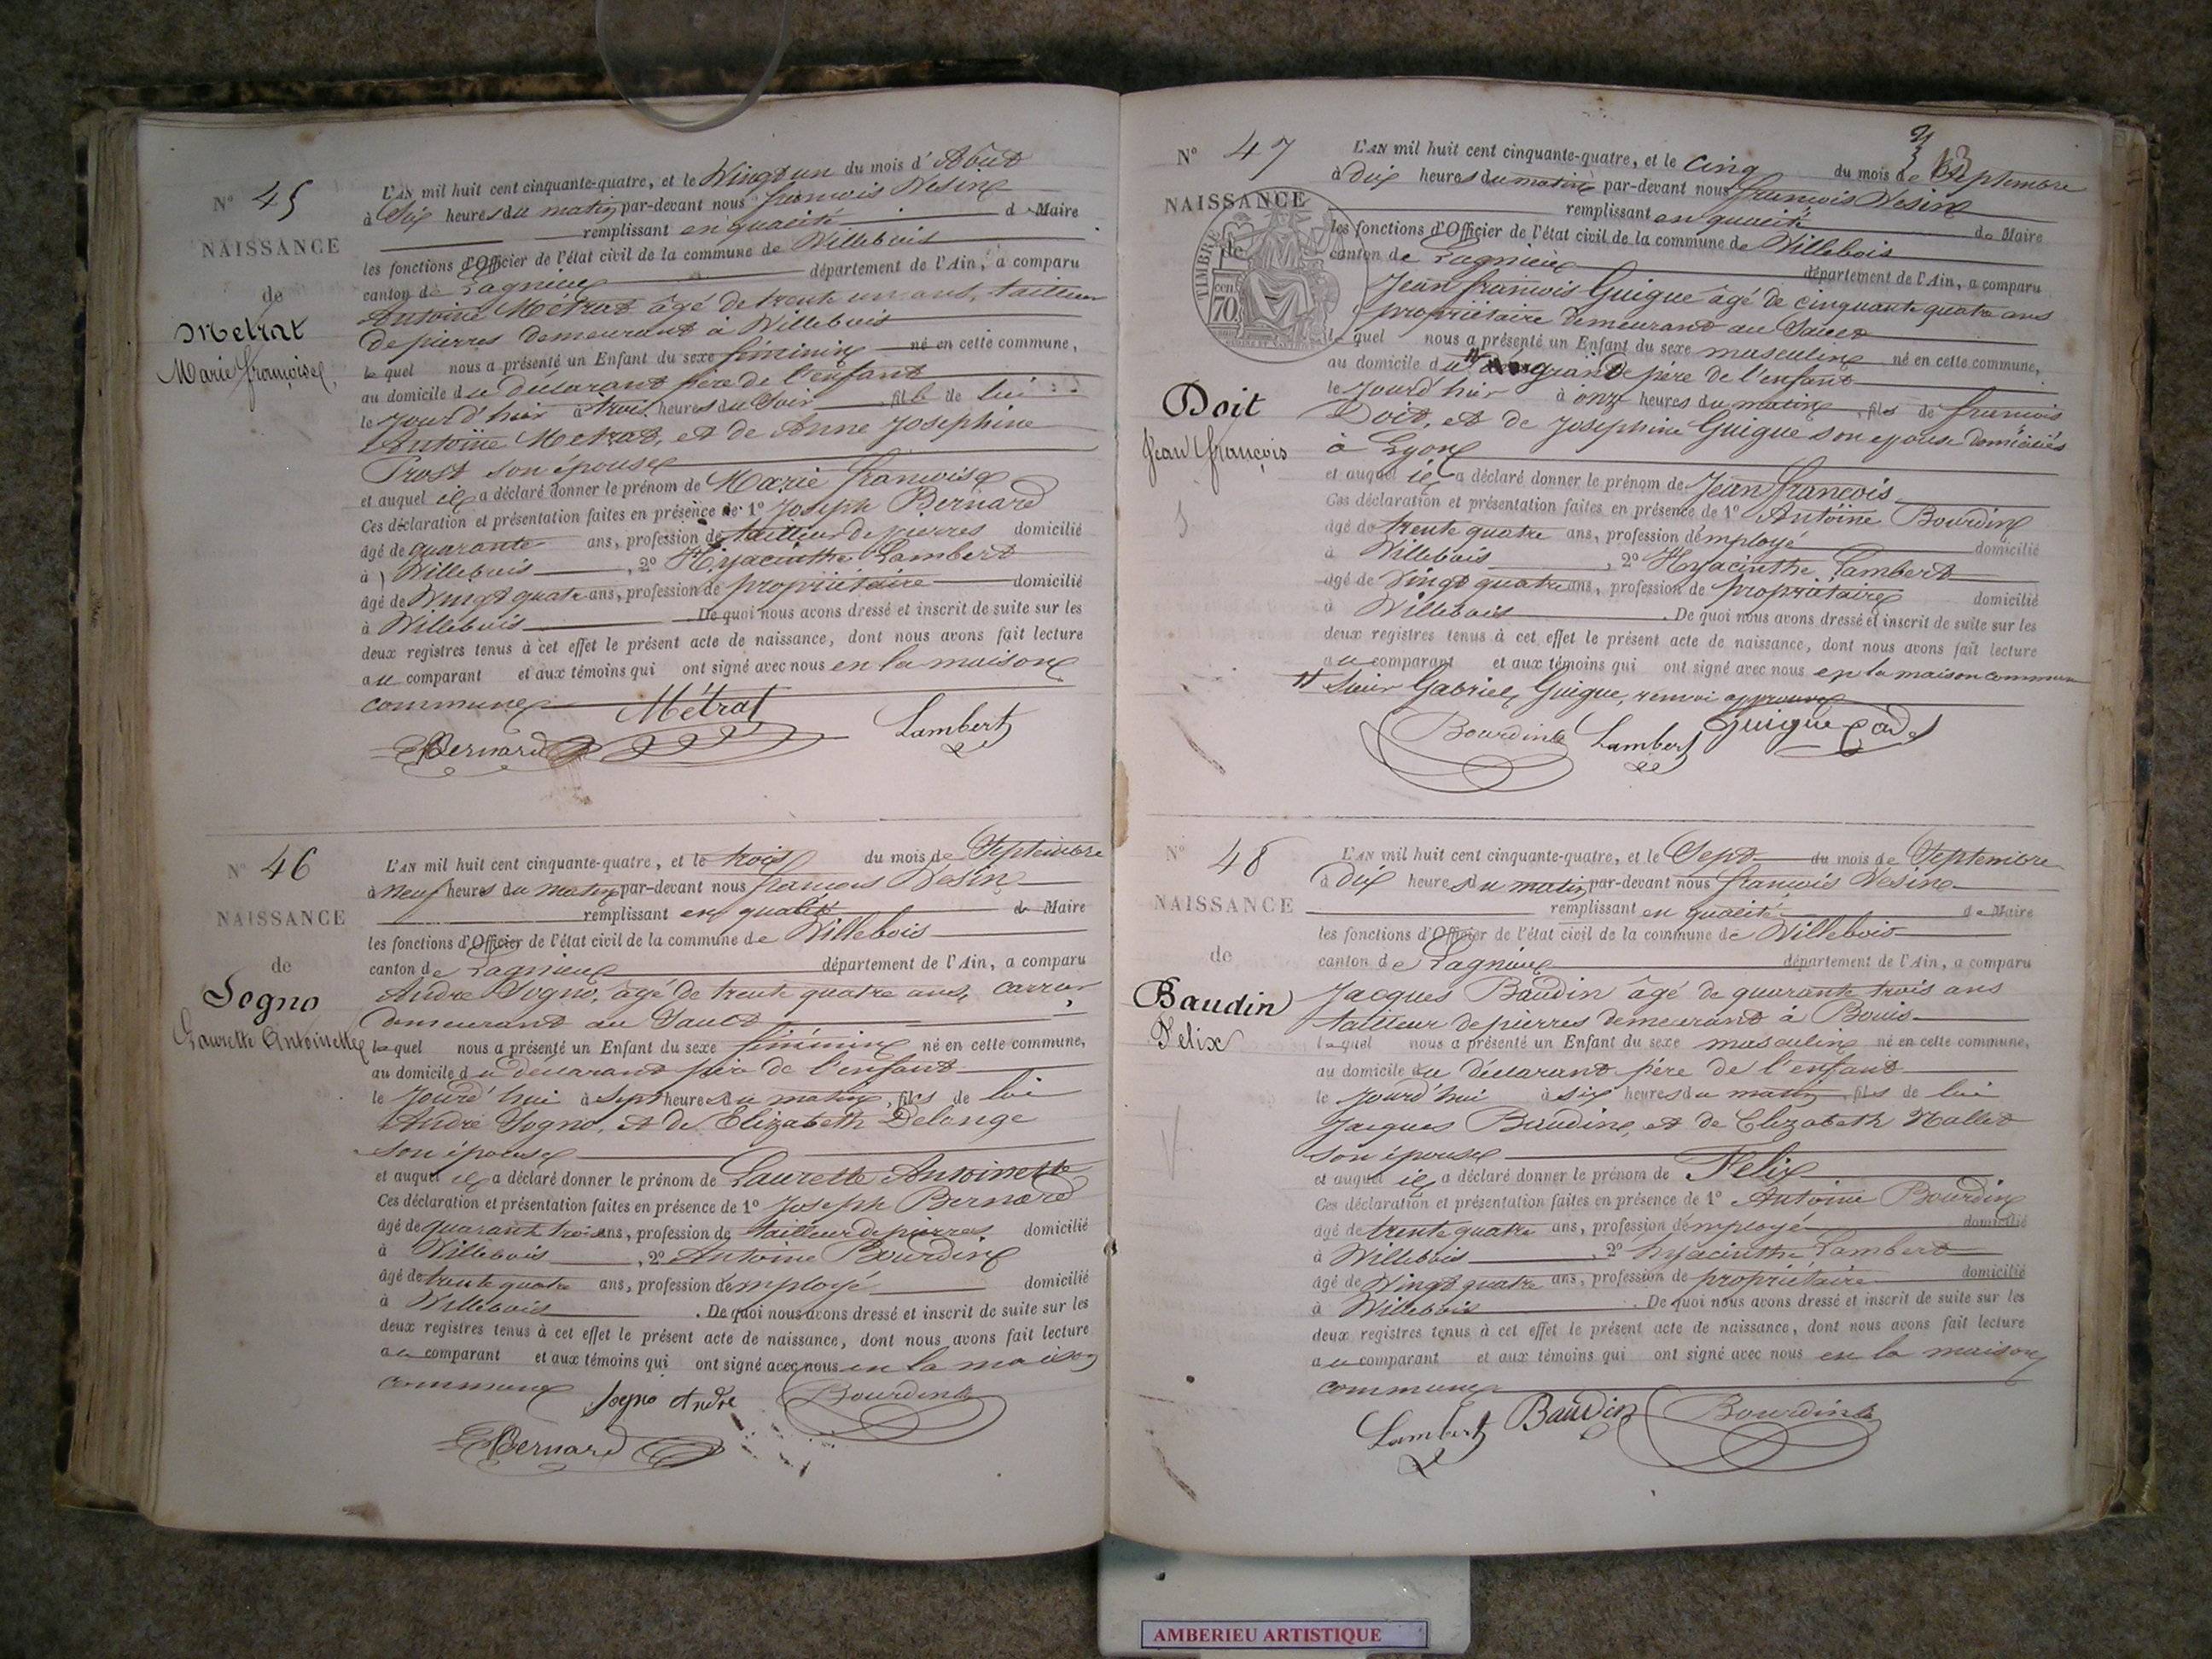 N° 45
NAISSANCE
de
Metrat
Marie françoise
L'AN mil huit cent cinquante-quatre, et le Vingt un du mois d'Août
à Six heures du matin par-devant nous françois Vesin
remplissant en qualité de Maire
les fonctions d'Officier de l'état civil de la commune de Villebois
canton de Lagnieu département de l'Ain, a comparu
Antoine Métrat âgé de trente un ans, tailleur
de pierres demeurant à Villebois
lequel nous a présenté un Enfant du sexe féminin né en cette commune,
au domicile du déclarant père de l'enfant
le Jourd'hier à trois heures du Soir, fille de lui
Antoine Metrat, et de Anne Josephine
Prost son épouse
et auquel il a déclaré donner le prénom de Marie françoise
Ces déclaration et présentation faites en présence de 1° Joseph Bernard
âgé de quarante ans, profession de tailleur de pierres domicilié
à Villebois, 2° Hyacinthe Lambert
âgé de Vingt quatre ans, profession de propriétaire domicilié
à Villebois. De quoi nous avons dressé et inscrit de suite sur les
deux registres tenus à cet effet le présent acte de naissance, dont nous avons fait lecture
au comparant et aux témoins qui ont signé avec nous en la maison
commune
Métrat
Lambert
Bernard
N° 46
NAISSANCE
de
Sogno
Laurette Antoinette
L'AN mil huit cent cinquante-quatre, et le trois du mois de Septembre
à Neuf heures du matin par-devant nous françois Vesin
remplissant en qualité de Maire
les fonctions d'Officier de l'état civil de la commune de Villebois
canton de Lagnieu département de l'Ain, a comparu
André Sogno, âgé de trente quatre ans, carrier
demeurant au Sault
lequel nous a présenté un Enfant du sexe féminin né en cette commune,
au domicile du déclarant père de l'enfant
le Jourd'hui à Sept heures du matin, fils de lui
André Sogno, et de Elizabeth Delange
son épouse
et auquel il a déclaré donner le prénom de Laurette Antoinette
Ces déclaration et présentation faites en présence de 1° Joseph Bernard
âgé de quarante trois ans, profession de tailleur de pierres domicilié
à Villebois, 2° Antoine Bourdin
âgé de trente quatre ans, profession d'employé domicilié
à Villebois. De quoi nous avons dressé et inscrit de suite sur les
deux registres tenus à cet effet le présent acte de naissance, dont nous avons fait lecture
au comparant et aux témoins qui ont signé avec nous en la maison
commune
Sogno André
Bourdin
Bernard
N° 47
NAISSANCE
de
TIMBRE
70 cen
Doit
Jean françois
L'AN mil huit cent cinquante-quatre, et le Cinq du mois de Septembre
à dix heures du matin par-devant nous françois Vesin
remplissant en qualité de Maire
les fonctions d'Officier de l'état civil de la commune de Villebois
canton de Lagnieu département de l'Ain, a comparu
Jean françois Guigue âgé de cinquante quatre ans
propriétaire demeurant au Sault
lequel nous a présenté un Enfant du sexe masculin né en cette commune,
au domicile du grand père de l'enfant
le Jourd'hier à onze heures du matin, fils de françois
Doit, et de Josephine Guigue son épouse domiciliés
à Lyon
et auquel il a déclaré donner le prénom de Jean françois
Ces déclaration et présentation faites en présence de 1° Antoine Bourdin
âgé de trente quatre ans, profession d'employé domicilié
à Villebois, 2° Hyacinthe Lambert
âgé de Vingt quatre ans, profession de propriétaire domicilié
à Villebois. De quoi nous avons dressé et inscrit de suite sur les
deux registres tenus à cet effet le présent acte de naissance, dont nous avons fait lecture
au comparant et aux témoins qui ont signé avec nous en la maison commune
Sieur Gabriel Guigue, renvoi approuvé
Bourdin
Lambert
Guigue cadet
N° 48
NAISSANCE
de
Baudin
Felix
L'AN mil huit cent cinquante-quatre, et le Sept du mois de Septembre
à Dix heures du matin par-devant nous françois Vesin
remplissant en qualité de Maire
les fonctions d'Officier de l'état civil de la commune de Villebois
canton de Lagnieu département de l'Ain, a comparu
Jacques Baudin âgé de quarante trois ans
tailleur de pierres demeurant à Bouis
lequel nous a présenté un Enfant du sexe masculin né en cette commune,
au domicile du déclarant père de l'enfant
le jourd'hui à six heures du matin, fils de lui
Jacques Baudin, et de Elizabeth Nallet
son épouse
et auquel il a déclaré donner le prénom de Felix
Ces déclaration et présentation faites en présence de 1° Antoine Bourdin
âgé de trente quatre ans, profession d'employé domicilié
à Villebois, 2° hyacinthe Lambert
âgé de Vingt quatre ans, profession de propriétaire domicilié
à Villebois. De quoi nous avons dressé et inscrit de suite sur les
deux registres tenus à cet effet le présent acte de naissance, dont nous avons fait lecture
au comparant et aux témoins qui ont signé avec nous en la maison
commune
Lambert
Baudin
Bourdin
AMBERIEU ARTISTIQUE